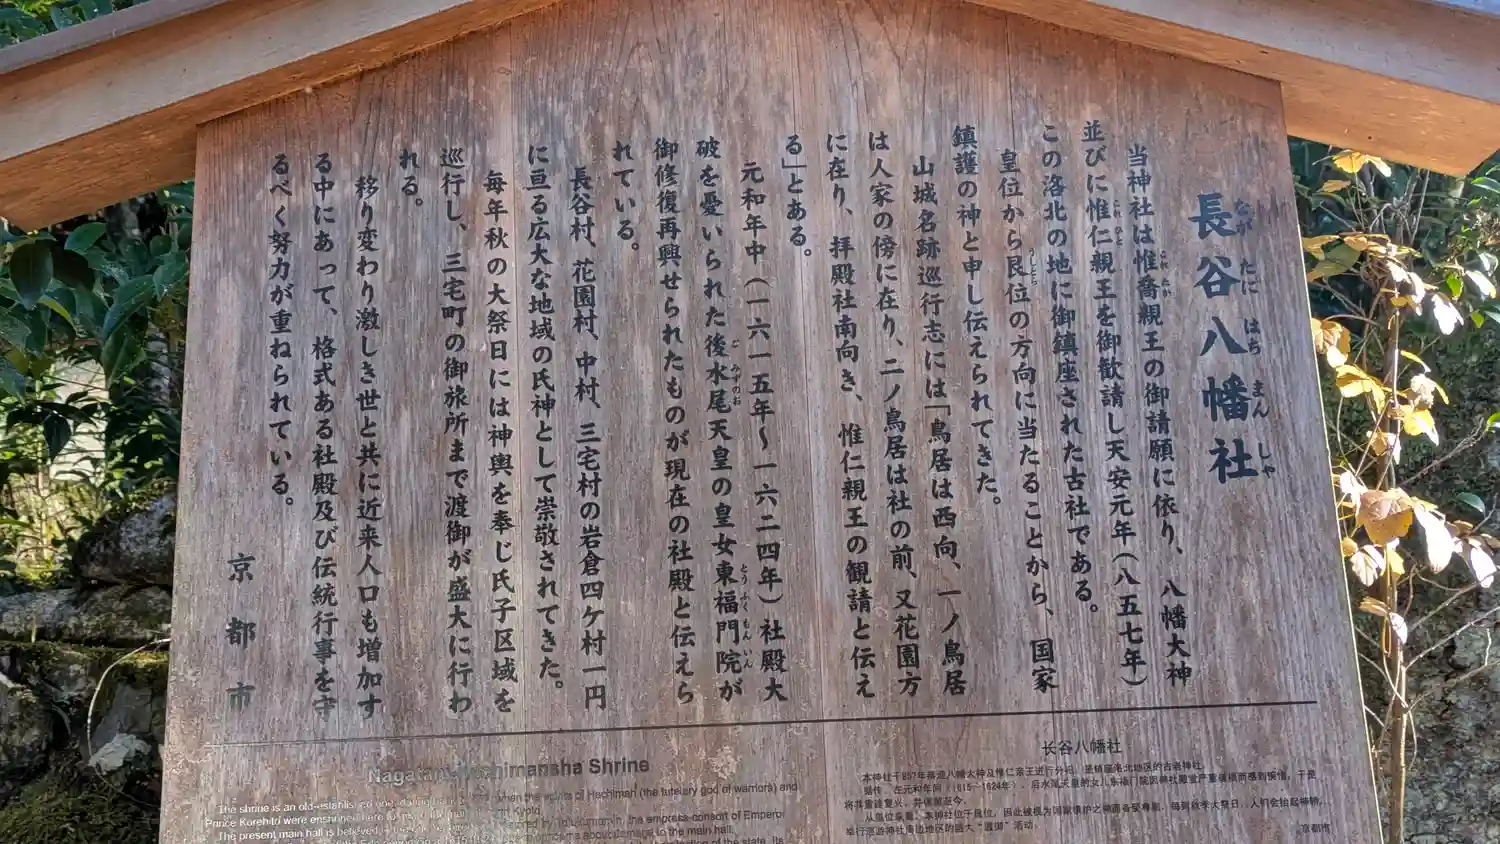 長谷八幡社
ながたにはちまんしゃ
当神社は惟喬親王の御請願に依り、八幡大神
並びに惟仁親王を御歓請し天安元年(八五七年)
この洛北の地に御鎮座された古社である。
皇位から艮位の方向に当たることから、国家
鎮護の神と申し伝えられてきた。
山城名跡巡行志には「鳥居は西向、一ノ鳥居
は人家の傍に在り、二ノ鳥居は社の前、又花園方
に在り、拝殿社南向き、惟仁親王の観請と伝え
る」とある。
元和年中(一六一五年〜一六二四年)社殿大
破を憂いられた後水尾天皇の皇女東福門院が
御修復再興せられたものが現在の社殿と伝えら
れている。
長谷村、花園村、中村、三宅村の岩倉四ケ村一円
に亘る広大な地域の氏神として崇敬されてきた。
毎年秋の大祭日には神輿を奉じ氏子区域を
巡行し、三宅町の御旅所まで渡御が盛大に行わ
れる。
移り変わり激しき世と共に近来人口も増加す
る中にあって、格式ある社殿及び伝統行事を守
るべく努力が重ねられている。
京都市
Shrine
The shrine is an old-established one, when the spirits of Hachiman (the tutelary god of warriors) and
Prince Korehito were enshrined here
The present main hall is believed the empress consort of Emperor
to the main hall.
长谷八幡社
京都市